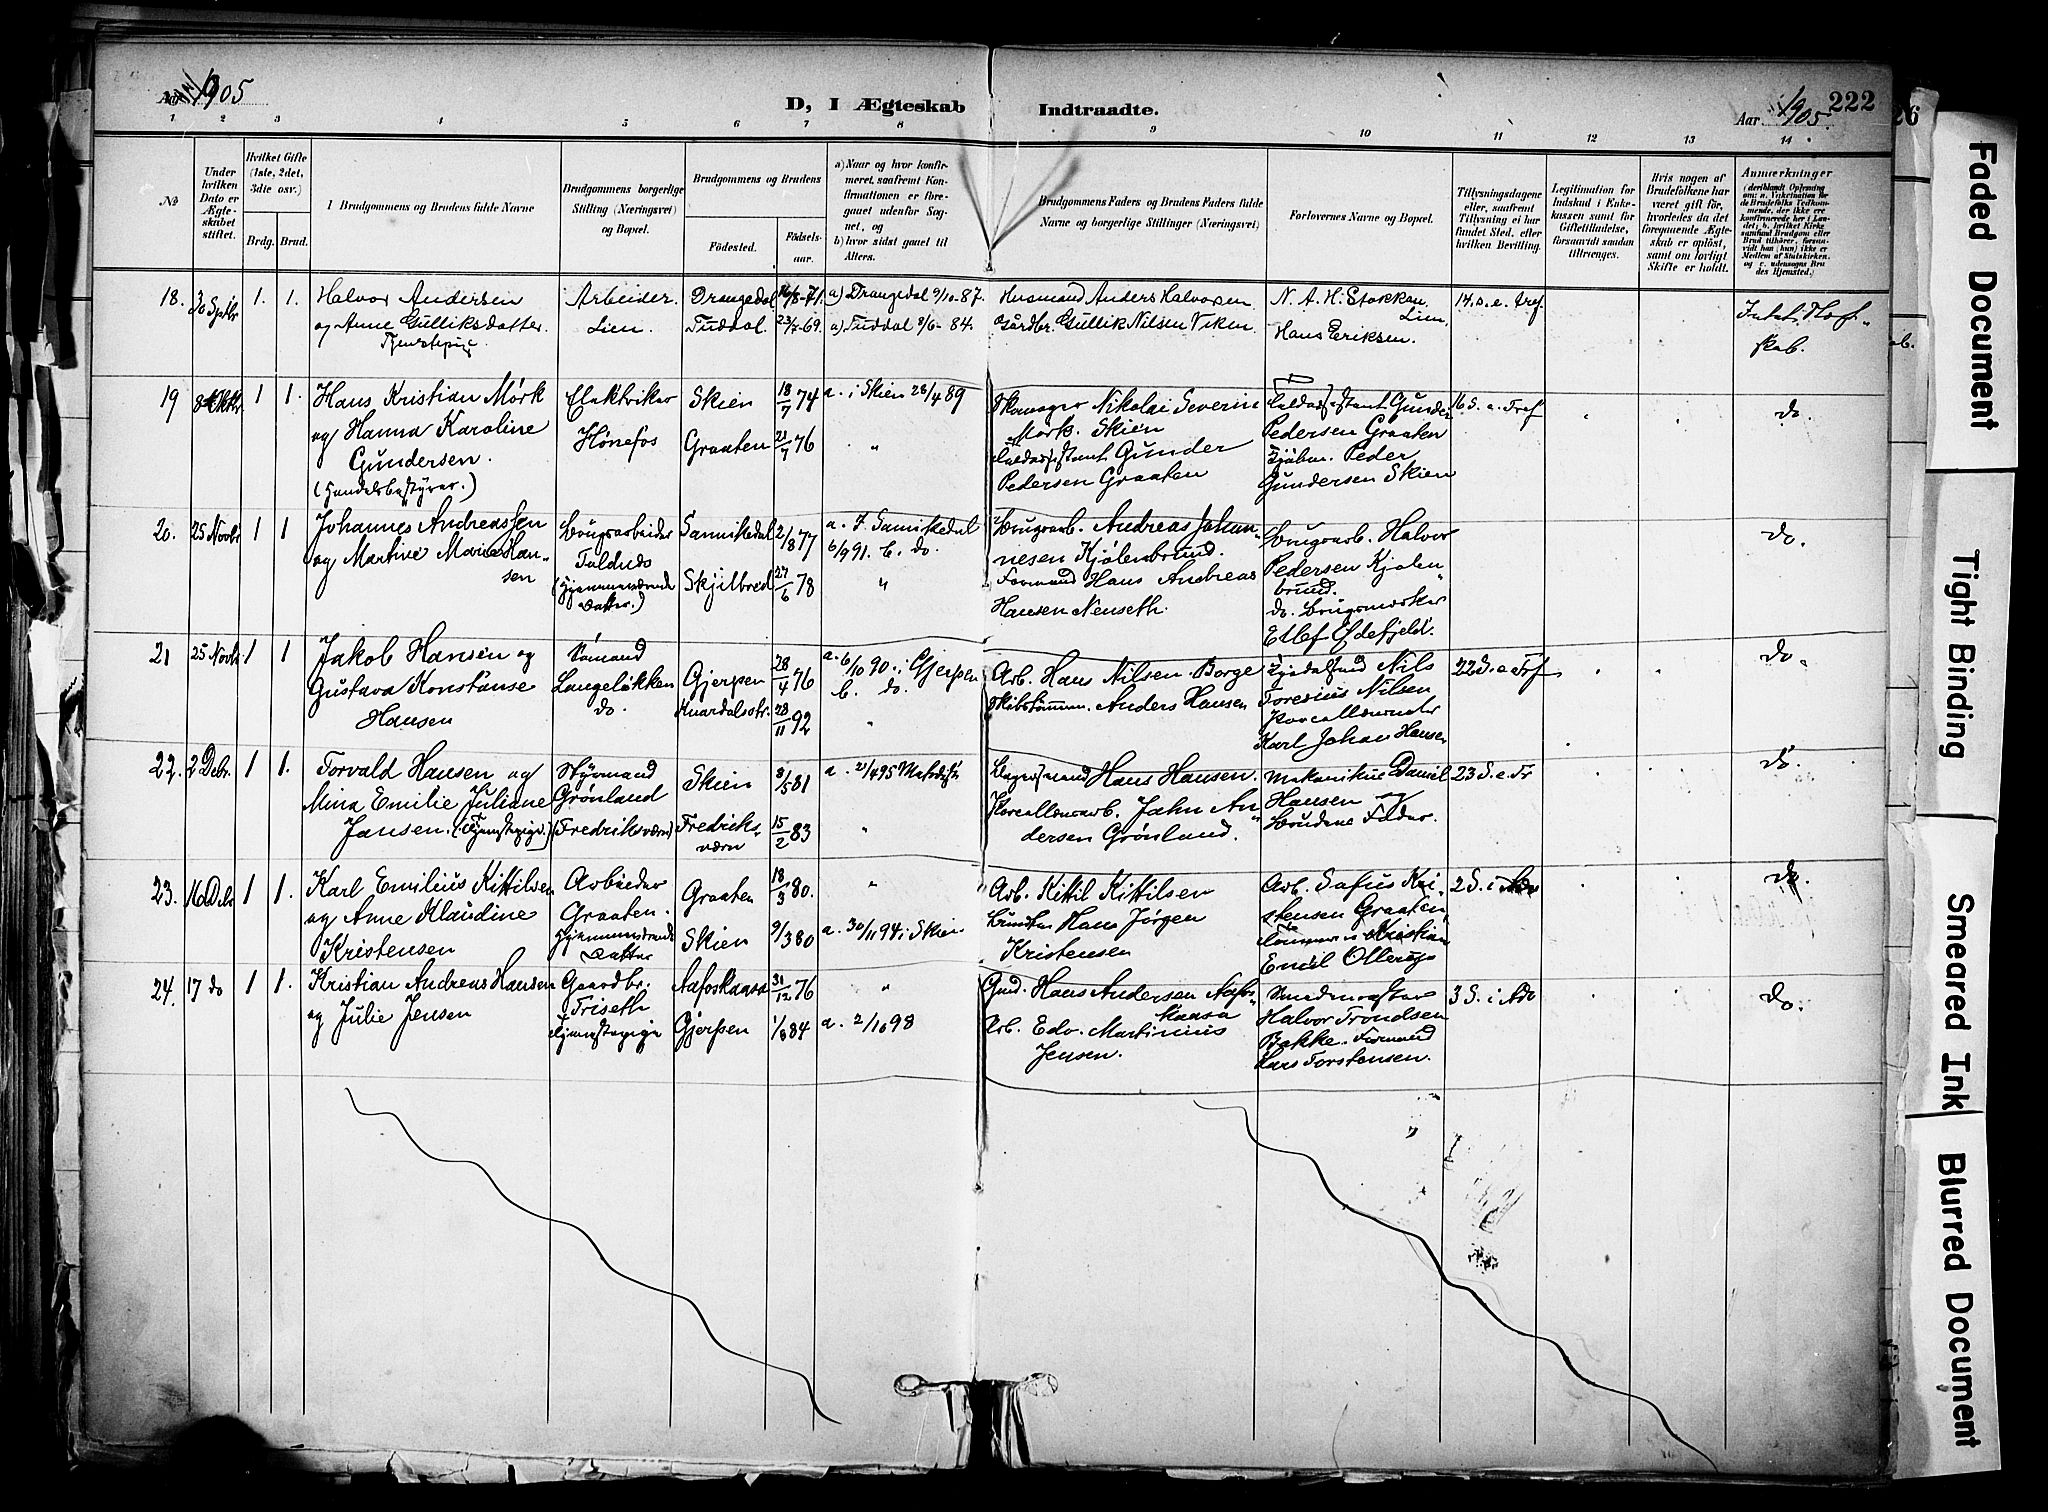 Aar 1905
D, I Ægteskab Indtraadte.
Aar 1905. 222
26
1 2 3 4 5 6 7 8 9 10 11 12 13 14
No
Under hvilken Dato er Ægteskabet stiftet.
Hvilket Gifte (1ste, 2det, 3die osv.)
Brdg. Brud.
Brudgommens og Brudens fulde Navne
Brudgommens borgerlige Stilling (Næringsvei) og Bopæl.
Brudgommens og Brudens
Fødested. Fødselsaar.
a) Naar og hvor konfirmeret, saafremt Konfirmationen er foregaaet udenfor Sognet, og
b) hvor sidst gaaet til Alters.
Brudgommens Faders og Brudens Faders fulde Navne og borgerlige Stillinger (Næringsvei)
Forlovernes Navne og Bopæl.
Tillysningsdagene eller, saafremt Tillysning ei har fundet Sted, efter hvilken Bevilling.
Legitimation for Indskud i Enkekassen samt for Giftetilladelse, forsaavidt saadan tiltrænges.
Hvis nogen af Brudefolkene har været gift før, hvorledes da det foregaaende Ægteskab er opløst, samt om lovligt Skifte er holdt.
Anmærkninger
18. 30 Sptbr 1. 1. Halvor Andersen og Anne Gulliksdatter. Tjenestepige
Arbeider. Lien.
Drangedal 16/8-71. a) Drangedal 9/10-87.
Tuddal. 23/7-69. a) Tuddal 8/6-84.
Husmand Anders Halvorsen
Gårdbr. Gullik Nilsen Viken
N. A. H. Stokkan, Lien,
Hans Eriksen.
14. s. e. tref.
skab.
19 8 Oktbr 1 1. Hans Kristian Mörk og Hanna Karoline Gundersen. (Handelsbestyrer.)
Elektriker Hönefos
Skien 18/7 74 a. i Skien 28/4 89
Graaten 21/7 76 "
Skomager Nikolai Severin Mörk. Skien
Gunder Pedersen Graaten
Gunder Pedersen Graaten
Peder Gundersen Skien
16 S. e. Tref
do.
20. 25 Novbr 1 1 Johannes Andreassen og Martine Marie Hansen
Brugsarbeider Faldnes (Hjemmeværende Datter.)
Sannikedal 2/8 77 a. i Sannikedal 6/9 91. b. do.
Skjilbred 27/6 78 "
Brugsarb. Andreas Johannesen Kjölenbrund.
Formand Hans Andreas Hansen Nenseth.
Brugsarb. Halvor Pedersen Kjölenbrund.
do. Brugsmester Etlef Efdefjeld.
do.
21 25 Novbr 1 1 Jakob Hansen og Gustava Konstanse Hansen
Sömand Langelökken do.
Gjerpen 28/4 76 a. 6/10 90. i Gjerpen b. do.
Knardalsstr. 28/11 92 "
Arb. Hans Nilsen Borge
Skibstömm. Anders Hansen
Nils Toresius Nilsen
Karl Johan Hansen
22 S. e. Trf
do.
22. 2 Debr. 1 1. Torvald Hansen og Mina Emilie Juliane Jansen. (Tjenestepige.)
Styrmand Grönland (Fredriksværn)
Skien 8/5 81 a. 21/4 95 Metodistk
Fredriksværn 15/2 83 "
Hans Hansen.
Porcellænsarb. Jahn Andersen Grönland.
Mekanikus Daniel Hansen og Brudens Fader.
23 S. e. Tr
do.
23. 16 Debr 1 1. Karl Emilius Kittilsen og Anne Klaudine Kristensen
Arbeider Graaten. Hjemmeværende Datter
Graaten 18/3 80. "
Skien 9/3 80 a. 30/11 94 i Skien
Arb. Kittil Kittilsen
Hans Jörgen Kristensen
Arb. Sofus Kristensen Graaten,
Kristian Emil Ollerup
2 S. i Adv
do.
24. 17 do 1 1. Kristian Andreas Hansen og Julie Jensen
Gaardbr. Triseth Tjenestepige
Aafoskaasa 31/12 76 "
Gjerpen 1/8 84 a. 2/10 98
Gmd. Hans Andersen Aafoskaasa
Arb. Edv. Martinius Jensen.
Smedmester Halvor Trondsen Bakke. Formand Lars Torstensen.
3 S. i Adv
do.
Faded Document
Tight Binding
Smeared Ink
Blurred Document